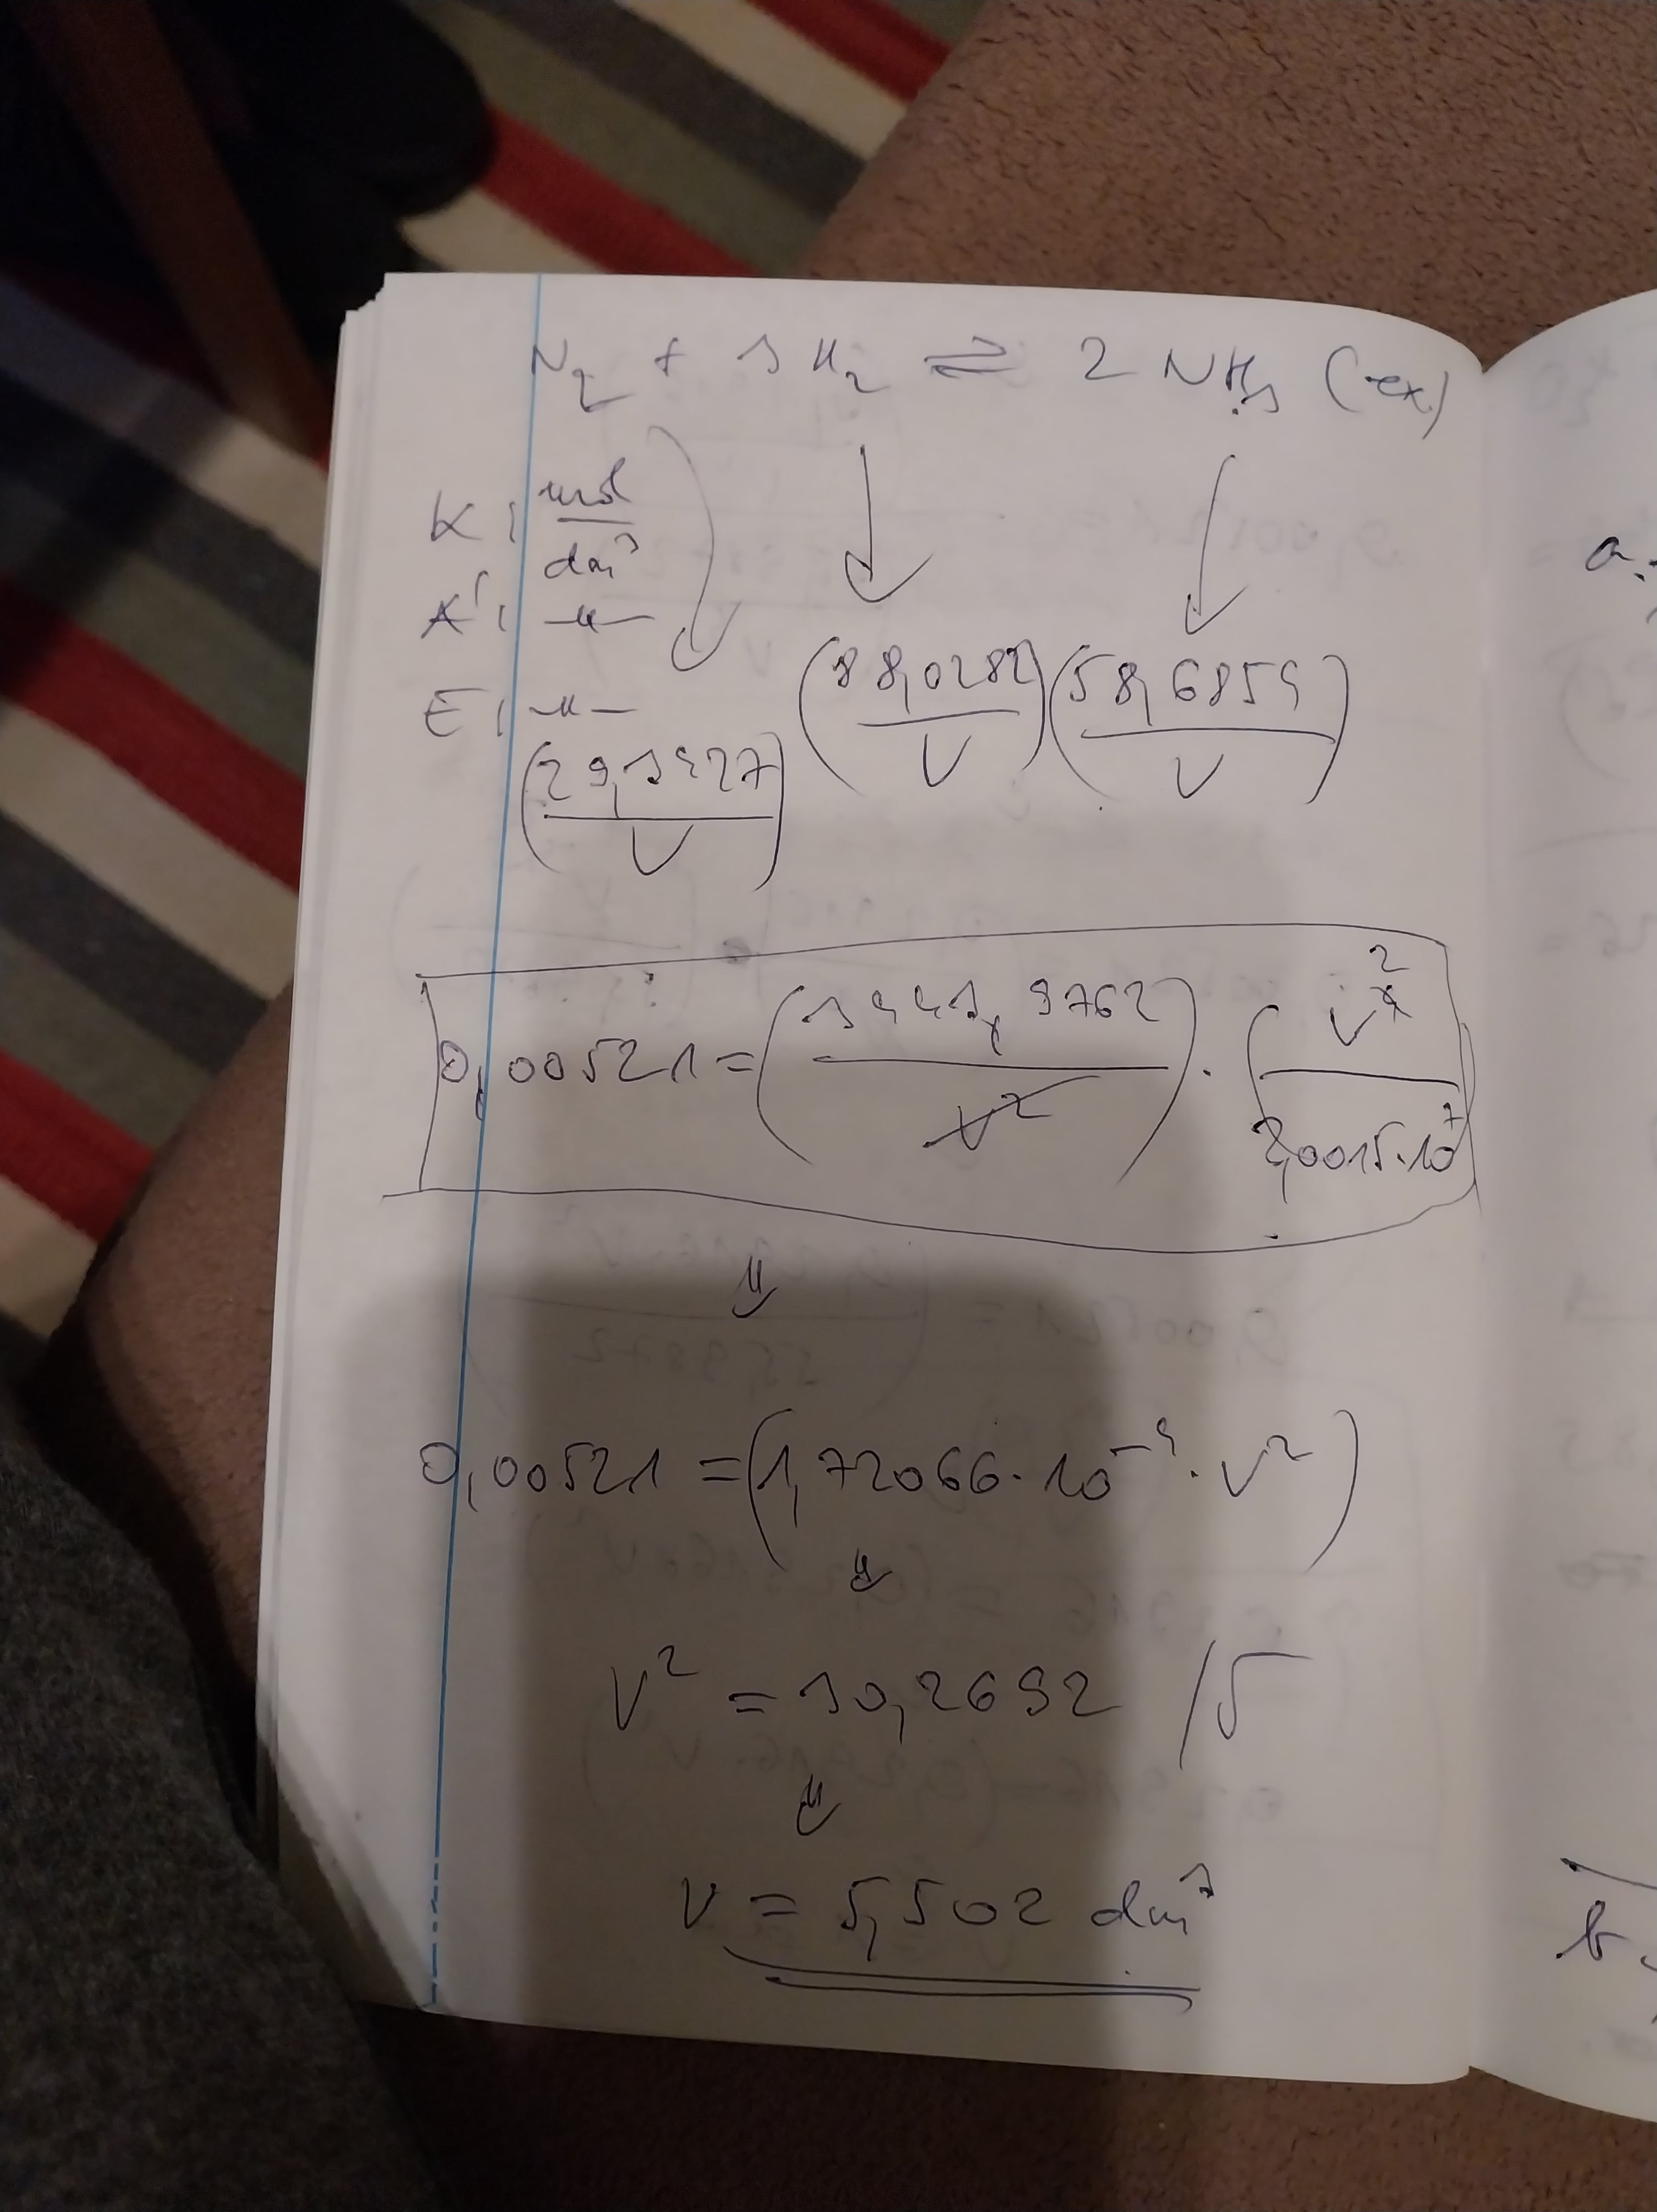 N₂ + 3 H₂ ⇌ 2 NH₃ (ex)
K: mol/dm³
Á: -"-
E: -"-
(29,3427/V) (88,0282/V) (58,6854/V)
0,00521 = (3443,9762/V²) · (V⁴ ²/2,0015·10⁷)
⇓
0,00521 = (1,72066·10⁻⁴·V²)
⇓
V² = 30,2692 /√
⇓
V = 5,502 dm³
a.
b.